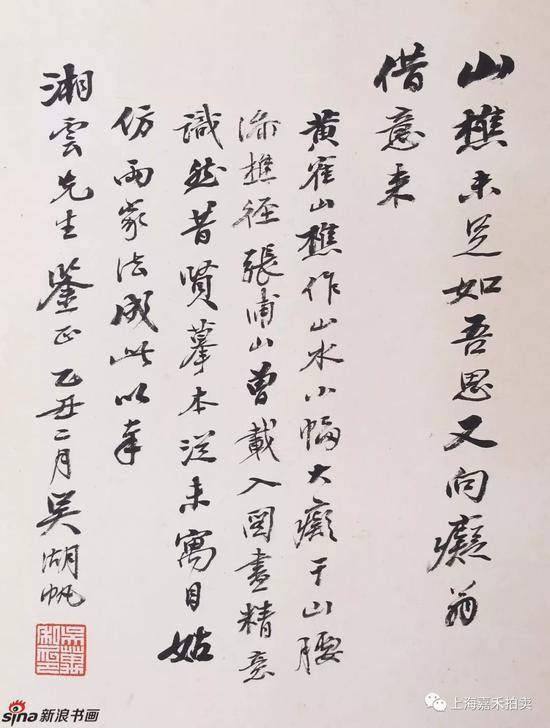 山樵未足如吾思又向癡翁
借意來
黃崔山樵作山水小幅大癡于山腰
添樵徑張浦山曾載入圖畫精意
識然昔賢摹本從未寓目姑
仿兩家法成此以奉
湘雲先生鑒正乙丑二月吳湖帆
sina新浪书画
上海嘉禾拍卖